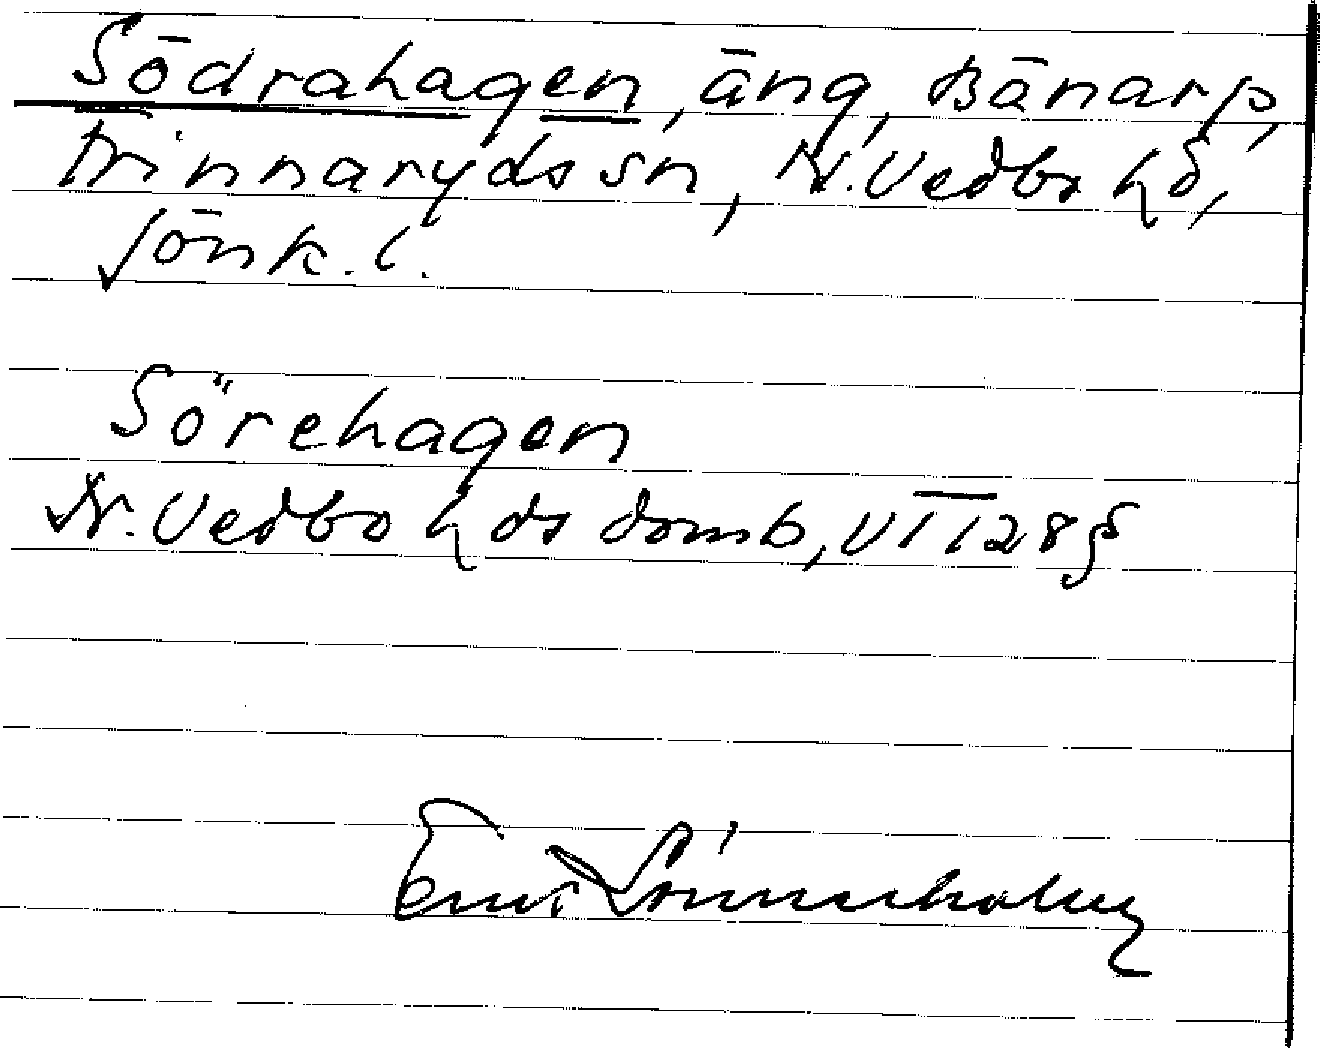 Södrahagen, äng, Bänarp,
Trinnaryds sn, N. Vedbo hd,
Jönk. l.
Sörehagen
N. Vedbo hds domb, VI 128 f
Ernst Lönneholm